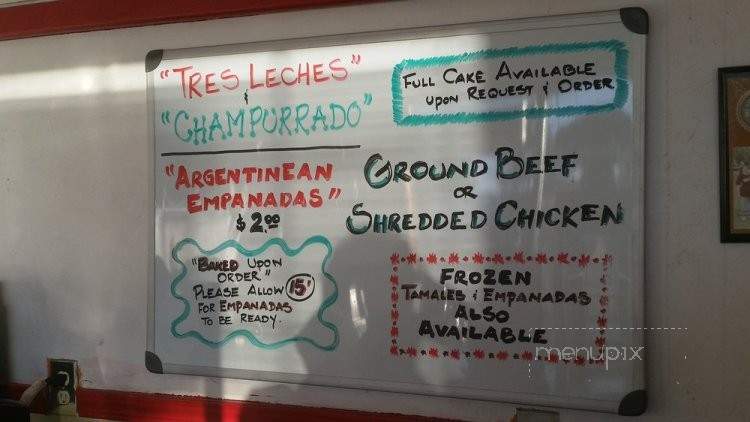 "TRES LECHES"
&
"CHAMPURRADO"
FULL CAKE AVAILABLE
UPON REQUEST & ORDER
"ARGENTINEAN
EMPANADAS"
$2.00
GROUND BEEF
OR
SHREDDED CHICKEN
"BAKED UPON
ORDER"
PLEASE ALLOW 15'
FOR EMPANADAS
TO BE READY.
FROZEN
TAMALES & EMPANADAS
ALSO
AVAILABLE
menupix